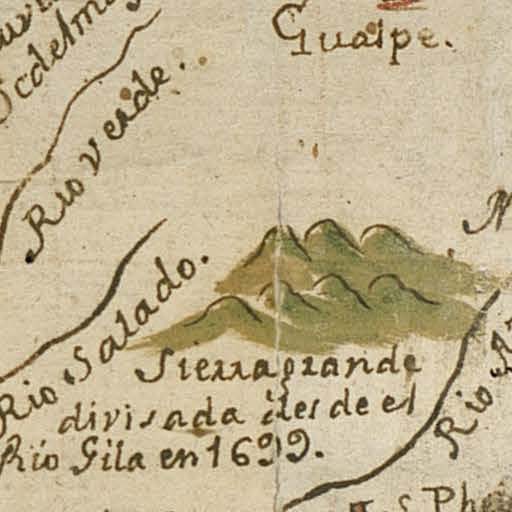 Gualpe.
Rio verde.
Rio Salado.
Sierra grande
divisada desde el
Rio Gila en 1699.
Rio